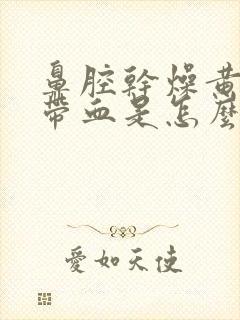 鼻腔幹燥黃
帶血是怎麼
愛如天使